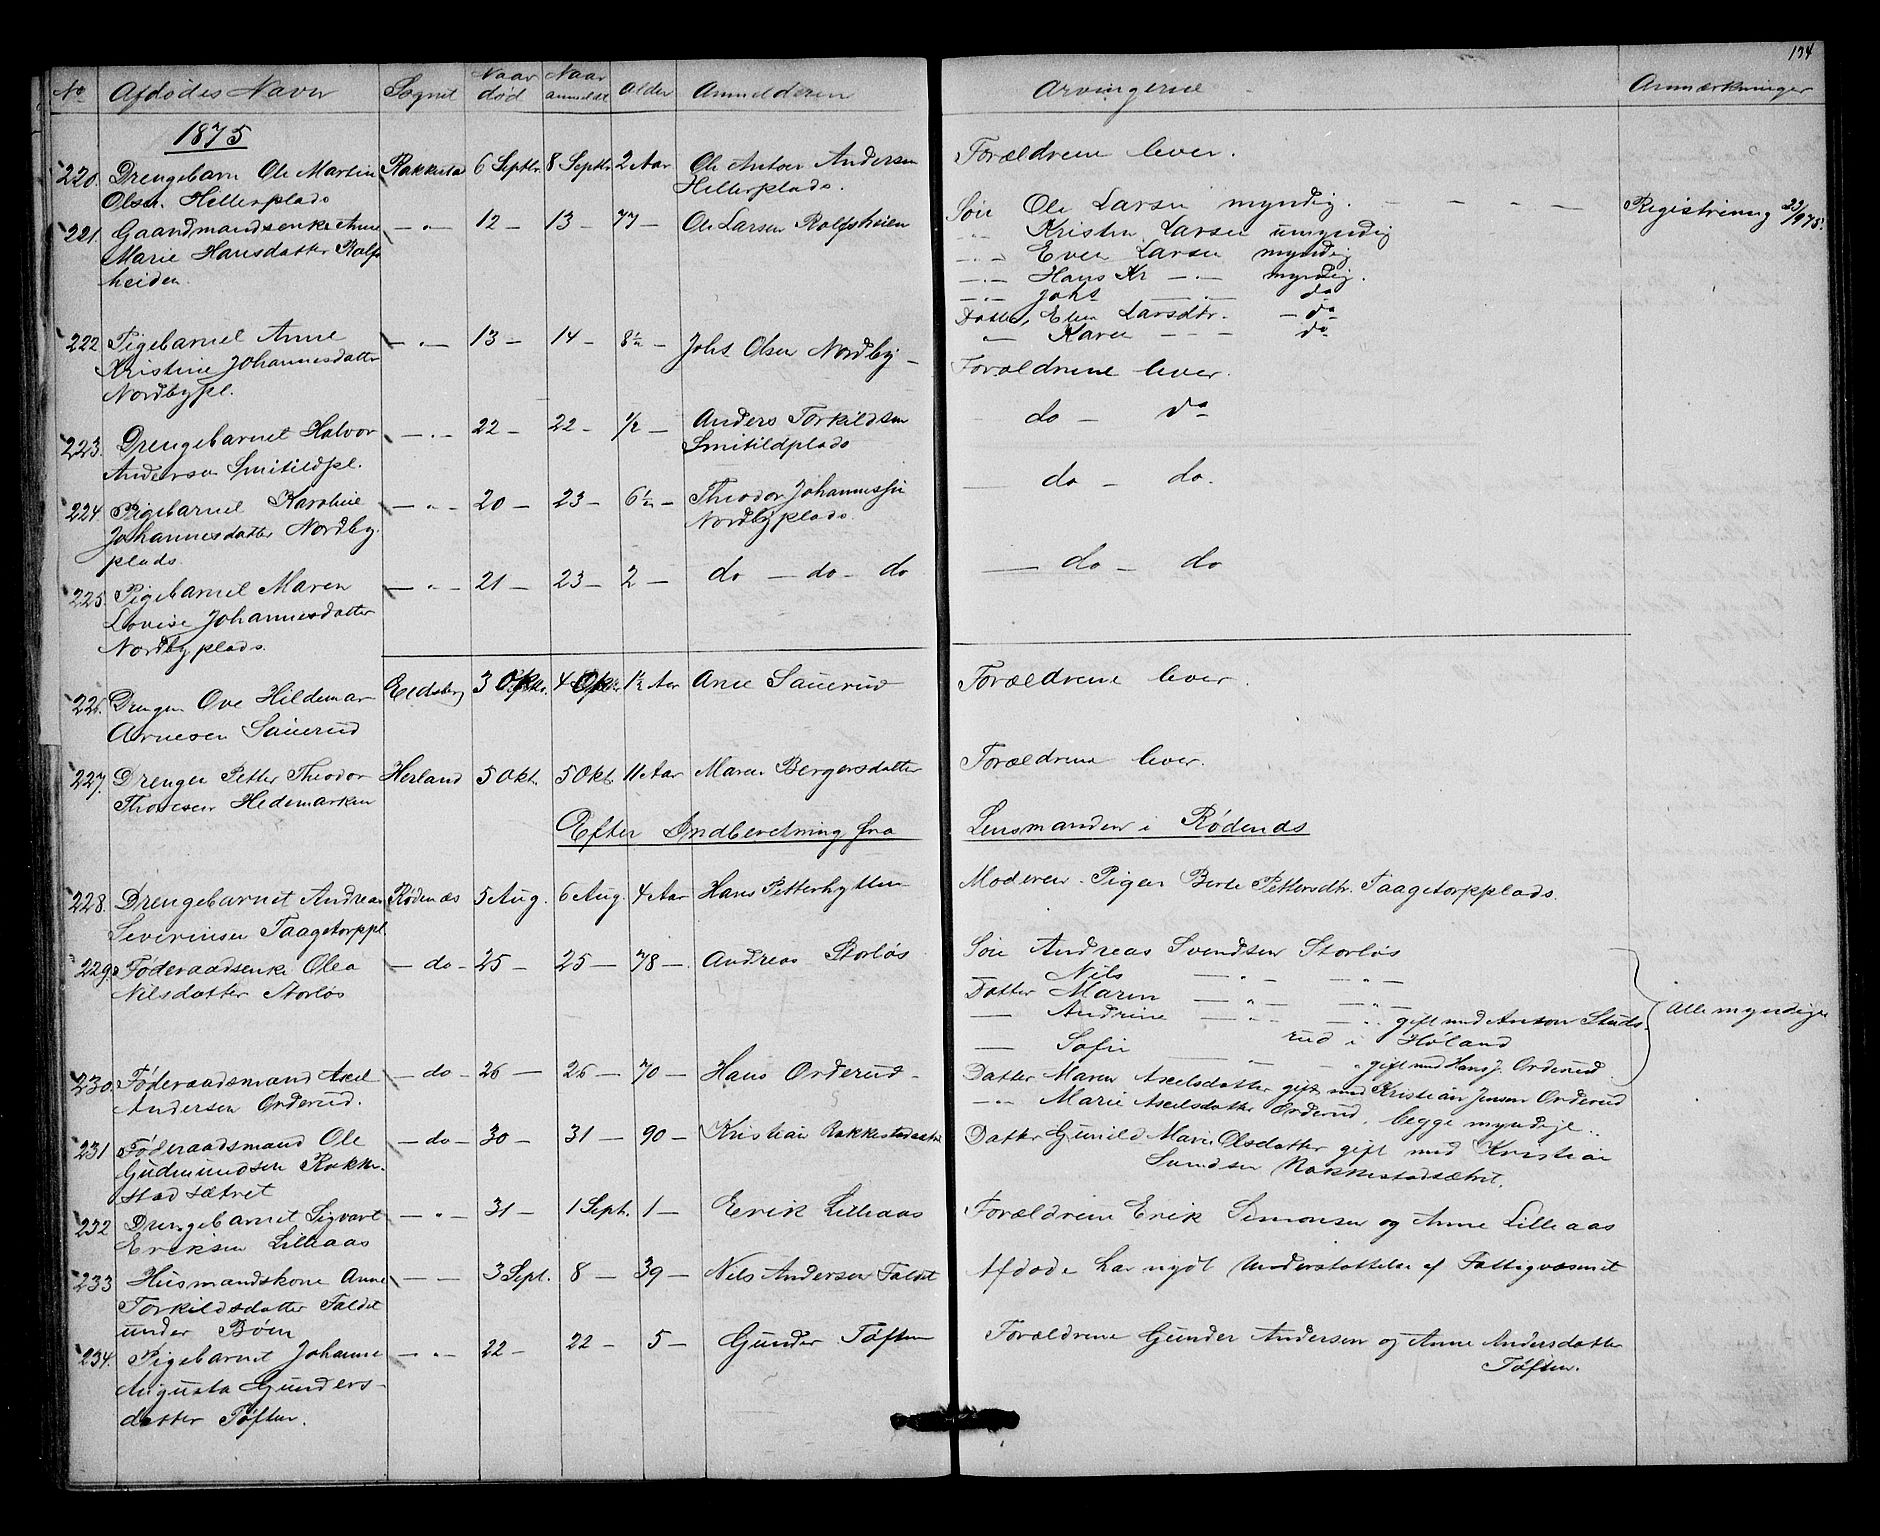 134
No Afdødes Navn Sognet Naar død Naar anmeldt Alder Anmelderen Arvingerne Anmærkninger
1875
220. Drengebarn Ole Martin Rakkestad 6 Septbr. 8 Septbr. 2 Aar Ole Antson Andersen Forældrene lever.
Olsen. Hellerplads Hellerplads.
221. Gaardmandsenke Anne — " — 12 — 13 — 77 — Ole Larsen Rolfsheien Søn Ole Larsen myndig. — — — — Registrering 23/9 75.
Marie Hansdatter Rolfs — " — Kristen Larsen umyndig
heiden. — " — Even Larsen myndig
— " — Hans Kr — " — myndig.
— " — Johs — " — do
Datter, Elen Larsdtr. — do
— " — Karen — — — do
222 Pigebarnet Anne — " — 13 — 14 — 8 1/2 — Johs Olsen Nordby — Forældrene lever.
Kristine Johannesdatter
Nordbypl.
223. Drengebarnet Halvor — " — 22 — 22 — 1/2 — Anders Torkildsen do — do
Andersen Smitildpl. Smitildplads
224 Pigebarnet Karoline — " — 20 — 23 — 6 1/2 — Theodor Johannessen — do — do.
Johannesdatter Nordby Nordbyplads.
plads.
225. Pigebarnet Maren — " — 21 — 23 — 2 — do — do — do — do — do
Lovise Johannesdatter
Nordbyplads.
226. Drengen Ove Hildemar Eidsberg 3 Oktbr. 4 Oktbr. 1 1/2 Aar Arne Sauerud Forældrene lever.
Arnesen Sauerud
227. Drengen Petter Theodor Herland 5 Okt. 5 Okt. 11 Aar Maren Bergersdatter Forældrene lever.
Thoresen Hedemarken
Efter Indberetning fra Lensmanden i Rødenæs
228. Drengebarnet Andreas Rødenæs 5 Aug. 6 Aug. 4 Aar Hans Petterhytten Moderen Pigen Berte Pettersdtr. Taagetorpplads.
Severinsen Taagetorppl.
229. Føderaadsenke Olea — do — 25 — 25 — 78 — Andreas Storløs Søn Andreas Svendsen Storløs
Nilsdatter Storløs — Nils — " — — " —
Datter Maren — " — — " — Alle myndige
— Andrine — " — — " — gift med Anton Studs-
rud i Høland
— Sofie — " — gift med Hans J. Orderud.
230. Føderaadsmand Axel — do — 26 — 26 — 70 — Hans Orderud — Datter Maren Axelsdatter gift med Kristian Jensen Orderud
Andersen Orderud. — " — Marie Axelsdatter Orderud, begge myndige.
231 Føderaadsmand Ole — do — 30 — 31 — 90 — Kristian Rakkestadsætre Datter Gunild Marie Olsdatter gift med Kristian
Gudmundsen Rakke- Rakkestadsætret.
stadsætret
232 Drengebarnet Sigvart — " — 31 — 1 Sept. 1 — Erik Lilleaas Forældrene Erik Simonsen og Anne Lilleaas
Eriksen Lilleaas
233 Husmandskone Anne — — 3 Sept. 8 — 39 — Nils Andersen Taldet Afdøde har nydt Understøttelse af Fattigvæsenet
Torkildsdatter Taldet
under Bøen
234. Pigebarnet Johanne — " — 22 — 22 — 5 — Gunder Tøften Forældrene Gunder Andersen og Anne Andersdatter
Augusta Gunders- Tøften.
datter Tøften.